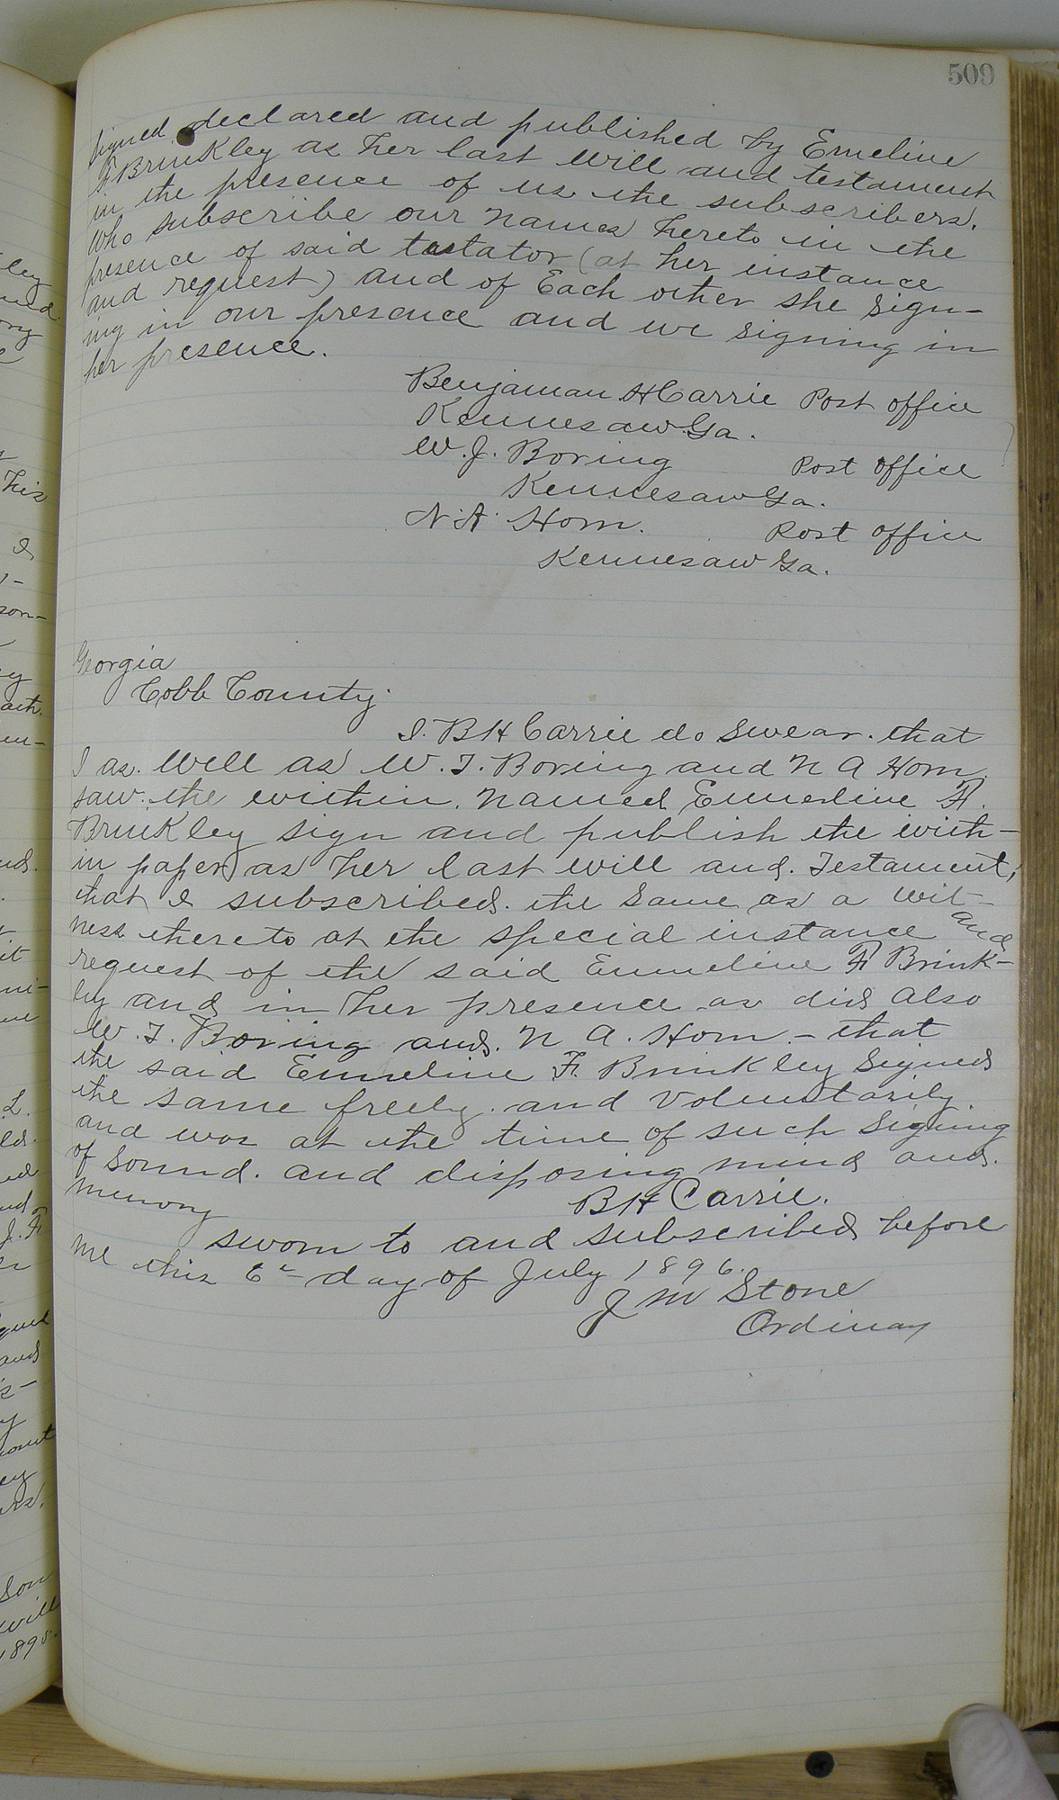 509
Signed declared and published by Emeline
F. Brinkley as her last will and testament
in the presence of us the subscribers.
Who subscribe our names hereto in the
presence of said tastator (at her instance
and request) and of Each other she sign-
ing in our presence and we signing in
her presence.
Benjaman H Carrie Post office
Kennesaw Ga.
W. J. Boring Post office
Kennesaw Ga.
N. A. Horn. Post office
Kennesaw Ga.
Georgia
Cobb County.
I. B H Carrie do Swear. that
I as. Well as W. T. Boring and N A Horn.
saw. the within. named Emmerline F.
Brinkley sign and publish the with-
in paper as her last will and. Testament,
that I subscribed. the Same as a wit-
ness thereto at the special instance and
request of the said Emmeline F Brink-
ly and in her presence as did also
W. T. Boring and. N A. Horn. - that
the said Emmeline F. Brinkley Signed
the same freely. and Voluntarily.
and was at the time of such Signing
of Sound. and disposing mind and.
memory
B H Carrie.
sworn to and subscribed before
me this 6th day of July 1896.
J M Stone
Ordinary